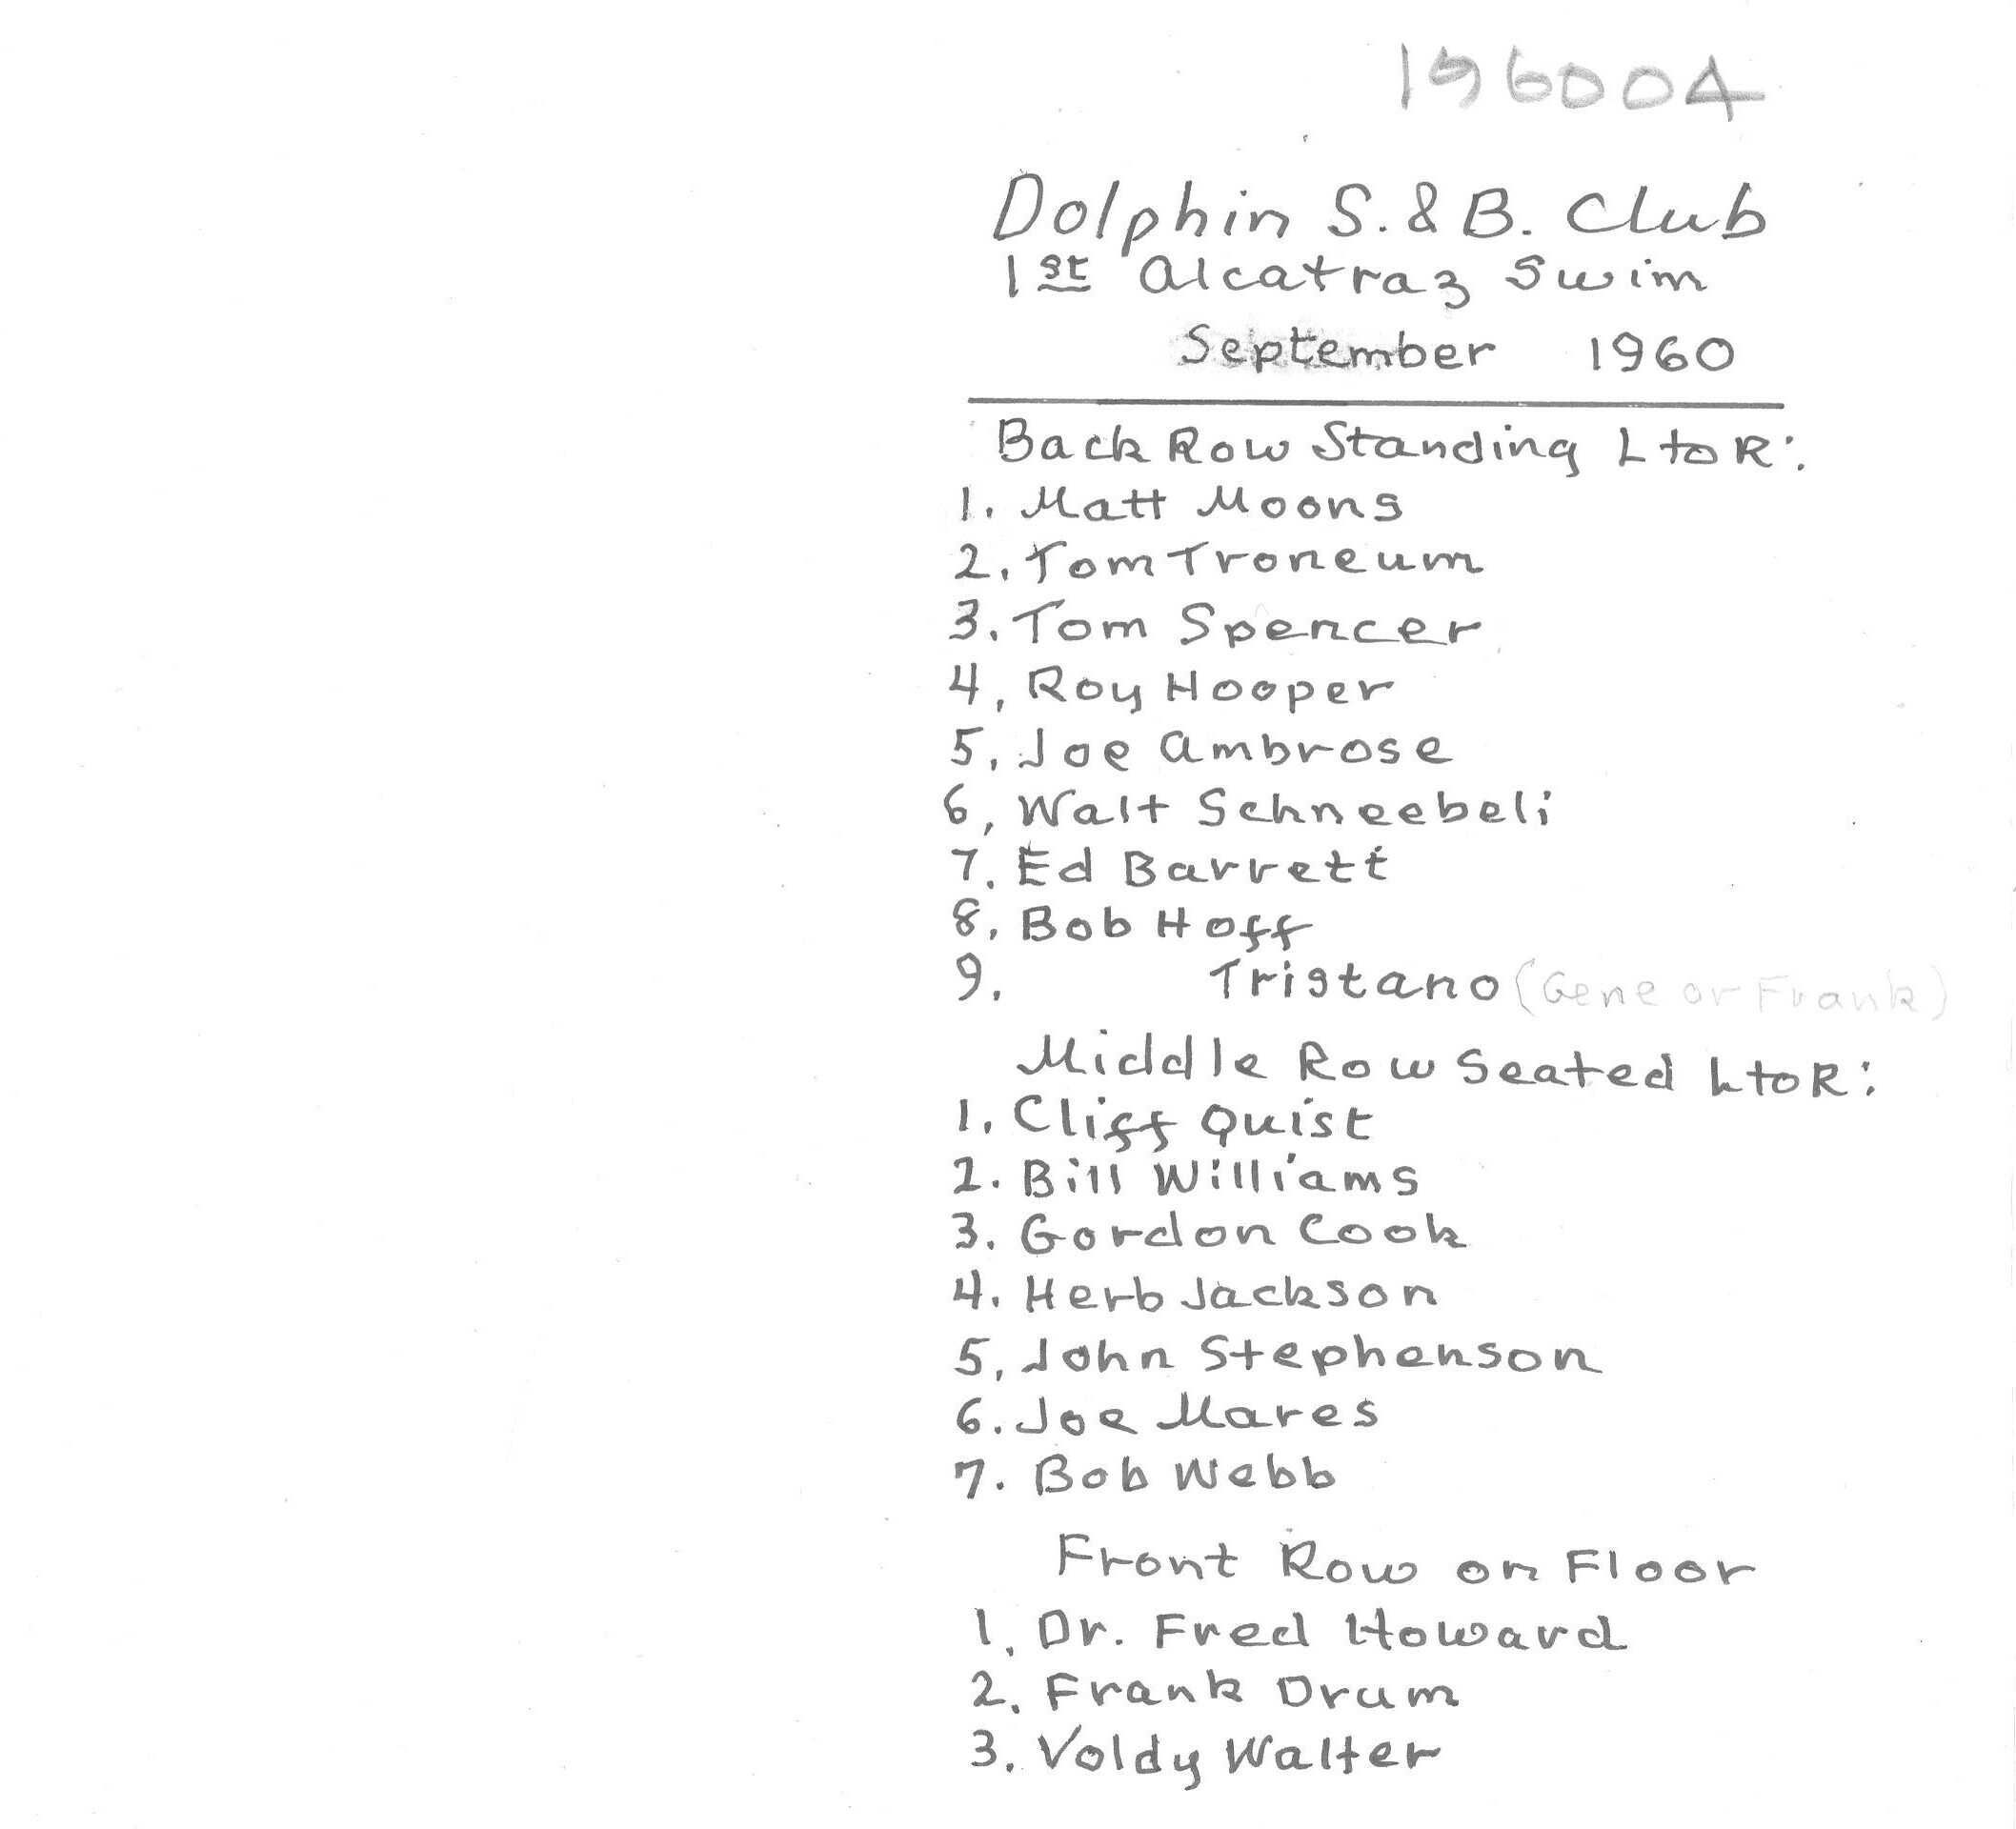 196004
Dolphin S. & B. Club
1st Alcatraz Swim
September 1960
Back Row Standing L to R:
1. Matt Moons
2. Tom Troneum
3. Tom Spencer
4, Roy Hooper
5, Joe Ambrose
6, Walt Schneebeli
7. Ed Barrett
8, Bob Hoff
9. Tristano (Gene or Frank)
Middle Row Seated L to R:
1. Cliff Quist
2. Bill Williams
3. Gordon Cook
4. Herb Jackson
5, John Stephenson
6. Joe Mares
7. Bob Webb
Front Row on Floor
1, Dr. Fred Howard
2. Frank Drum
3. Voldy Walter